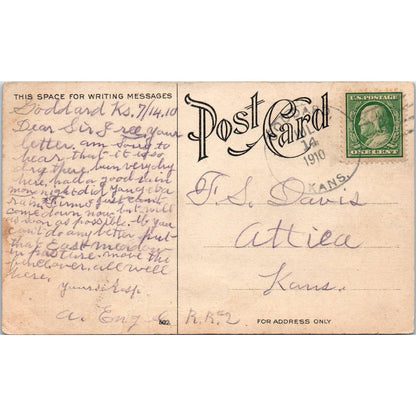 THIS SPACE FOR WRITING MESSAGES
Goddard Ks. 7/14.10
Dear Sir I rec. your
letter, am sorry to
hear that it is so
dry there, bun very dry
here, had a good rain
mon night did
just can't
come down now but will
as soon as possible. If you
can't do any better put
that East meadow
in pasture. move the
fence over. all well
here.
Yours Resp.
A. Eng
502
Post Card
14
1910
KANS.
U.S. POSTAGE
ONE CENT
T. S. Davis
Attica
Kans.
R.R. 2.
FOR ADDRESS ONLY